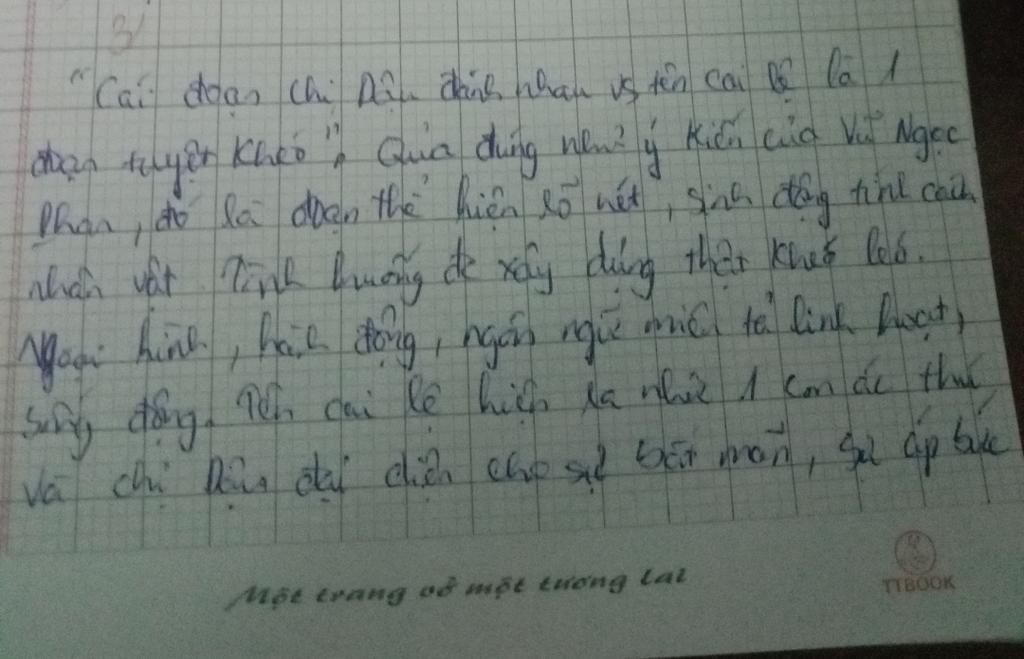 3/
"Cái đoạn chị Dậu đánh nhau vs tên cai lệ là 1
đoạn tuyệt khéo". Quả đúng như ý kiến của Vũ Ngọc
Phan, đó là đoạn thể hiện rõ nét, sinh động tính cách
nhân vật. Tình huống đc xây dựng thật khéo léo.
Ngoại hình, hành động, ngôn ngữ miêu tả linh hoạt,
sống động. Tên cai lệ hiện ra như 1 con ác thú
và chị Dậu đại diện cho sự bất mãn, sự áp bức
Một trang vở một tương lai
TTBOOK